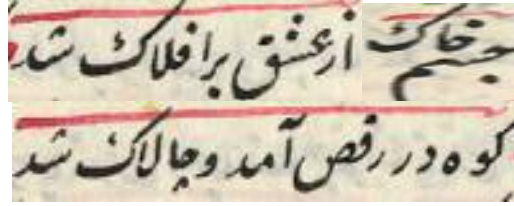 جسم خاک از عشق بر افلاک شد
کوه در رقص آمد و چالاک شد